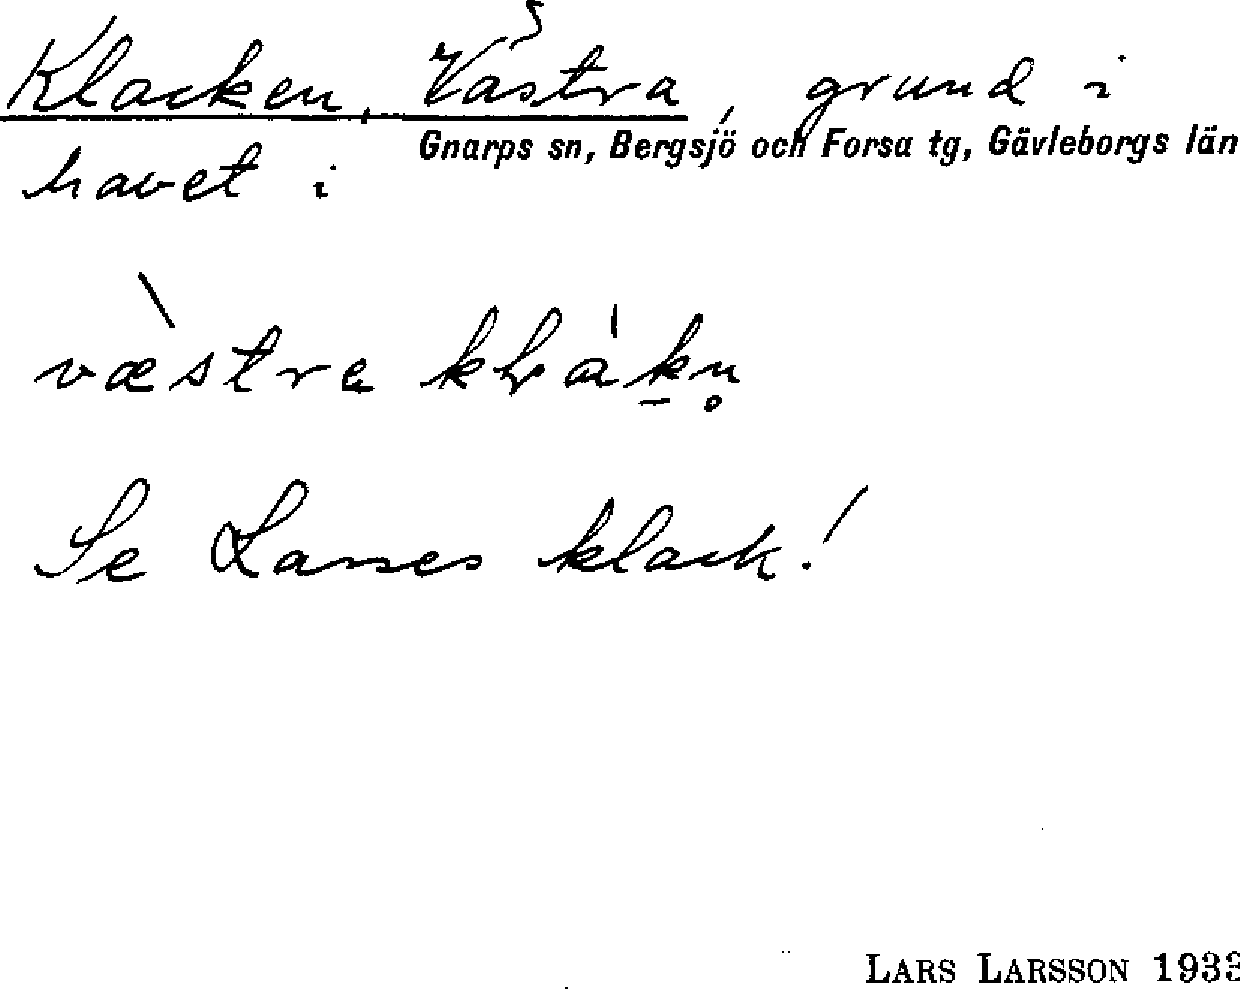 Klacken, Västra, grund i
Gnarps sn, Bergsjö och Forsa tg, Gävleborgs län
havet i
væstra
Se Lasses klack!
LARS LARSSON 1933